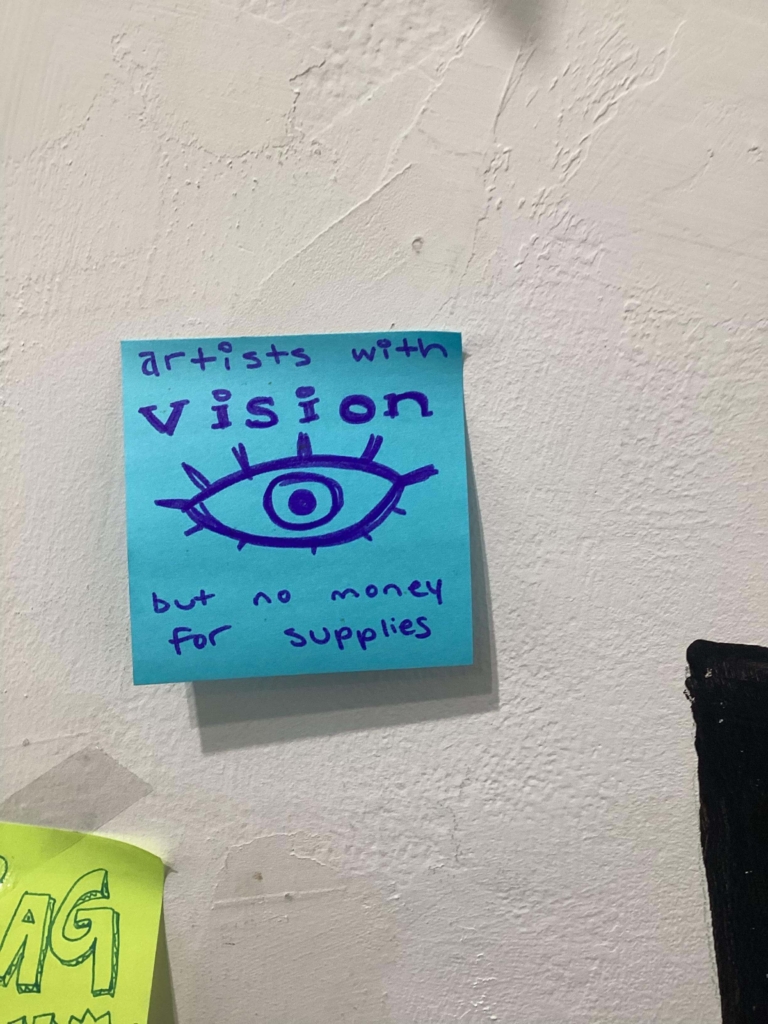 artists with
vision
but no money
for supplies
AG